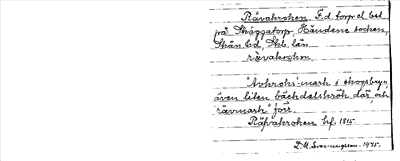 Råvakroken. F.d. torp el. bst
på Skåggatorp, Händene socken,
Skån. hd, Skb. län.
rävakroken.
"Avkroks"-mark i skogsbryn
även liten bäckdalskrök där, och
"rävmark" förr.
Räfvakroken hf. 1815
D.M. 1945.